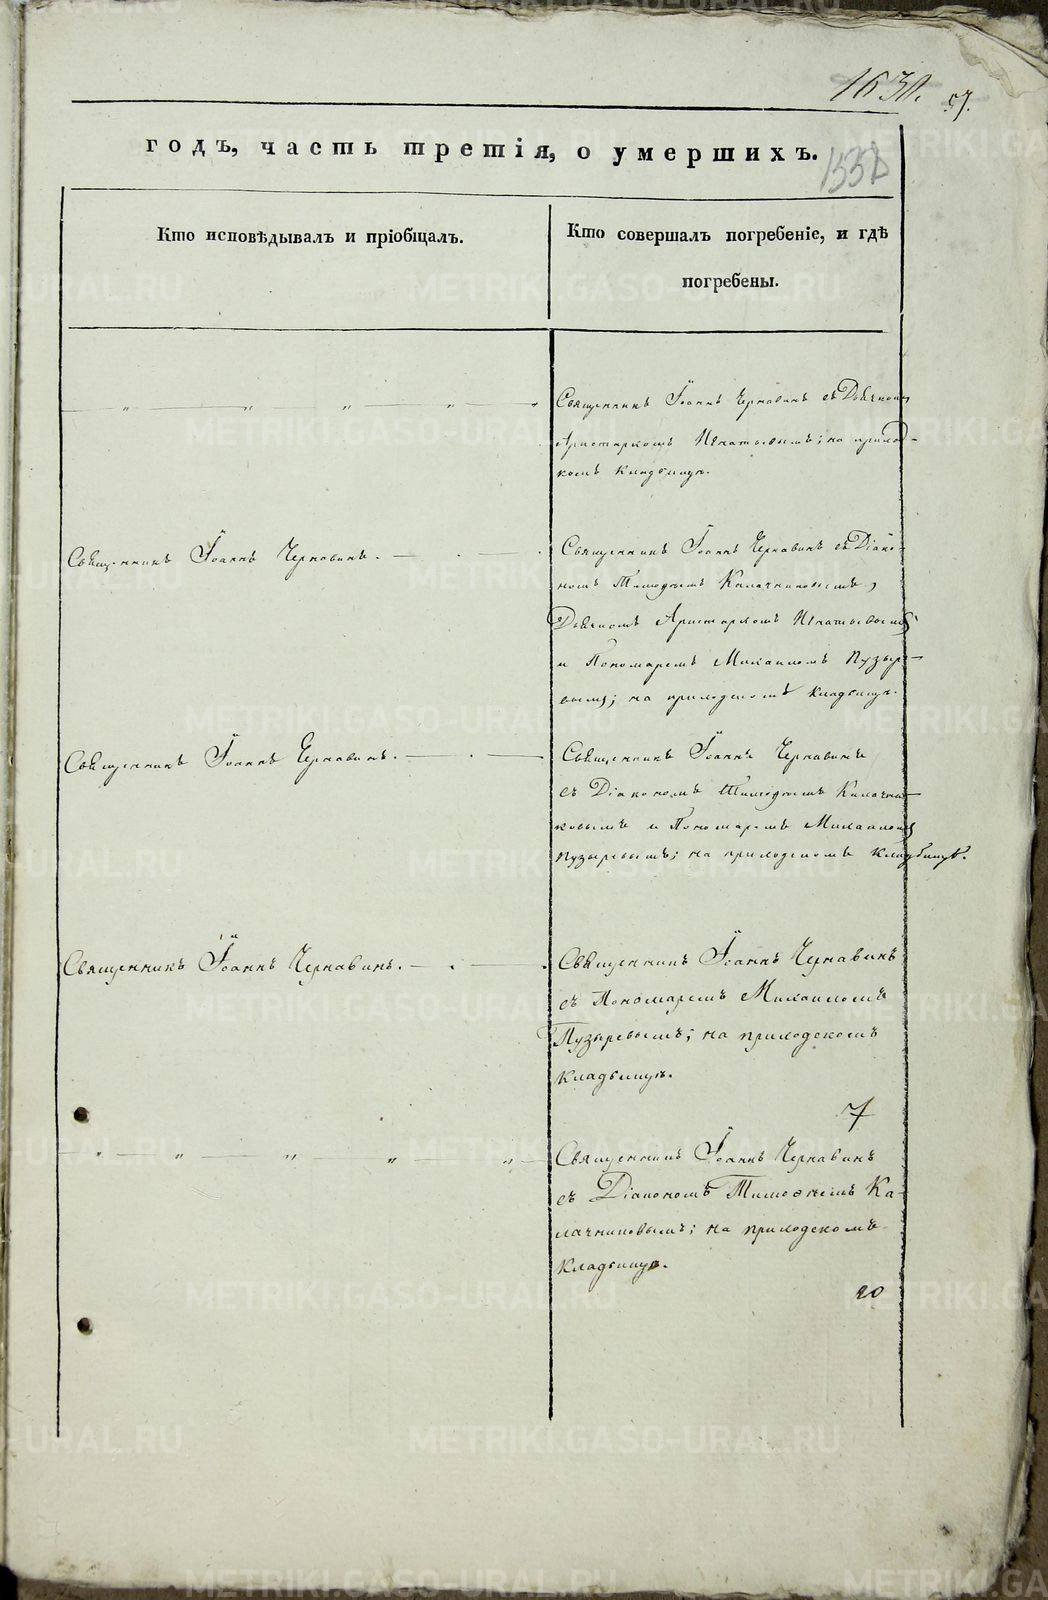 57.
годъ, часть третія, о умершихъ.
Кто исповѣдывалъ и пріобщалъ.
Кто совершалъ погребеніе, и гдѣ
погребены.
Священникъ Іоаннъ Чернавинъ съ Дьячкомъ
Аристархомъ Игнатьевымъ; на приход-
комъ кладбищѣ.
Священникъ Іоаннъ Чернавинъ.
Священникъ Іоаннъ Чернавинъ съ Діако-
номъ Тимофѣемъ Калачниковымъ,
Дьячкомъ Аристархомъ Игнатьевымъ
и Пономаремъ Михаиломъ Пузыре-
вымъ; на приходскомъ кладбищѣ.
Священникъ Іоаннъ Чернавинъ.
Священникъ Іоаннъ Чернавинъ
съ Діакономъ Тимофѣемъ Калачни-
ковымъ и Пономаремъ Михаиломъ
Пузыревымъ; на приходскомъ кладбищѣ.
Священникъ Іоаннъ Чернавинъ.
Священникъ Іоаннъ Чернавинъ
съ Пономаремъ Михаиломъ
Пузыревымъ; на приходскомъ
кладбищѣ.
7
Священникъ Іоаннъ Чернавинъ
съ Діакономъ Тимоѳѣемъ Ка-
лачниковымъ; на приходскомъ
кладбищѣ.
20
METRIKI.GASO-URAL.RU